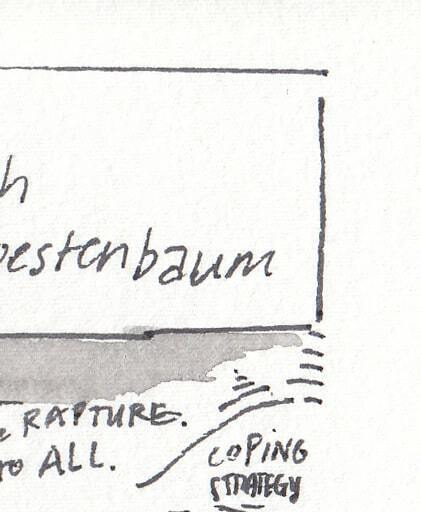 h
oestenbaum
e RAPTURE.
to ALL.
COPING
STRATEGY